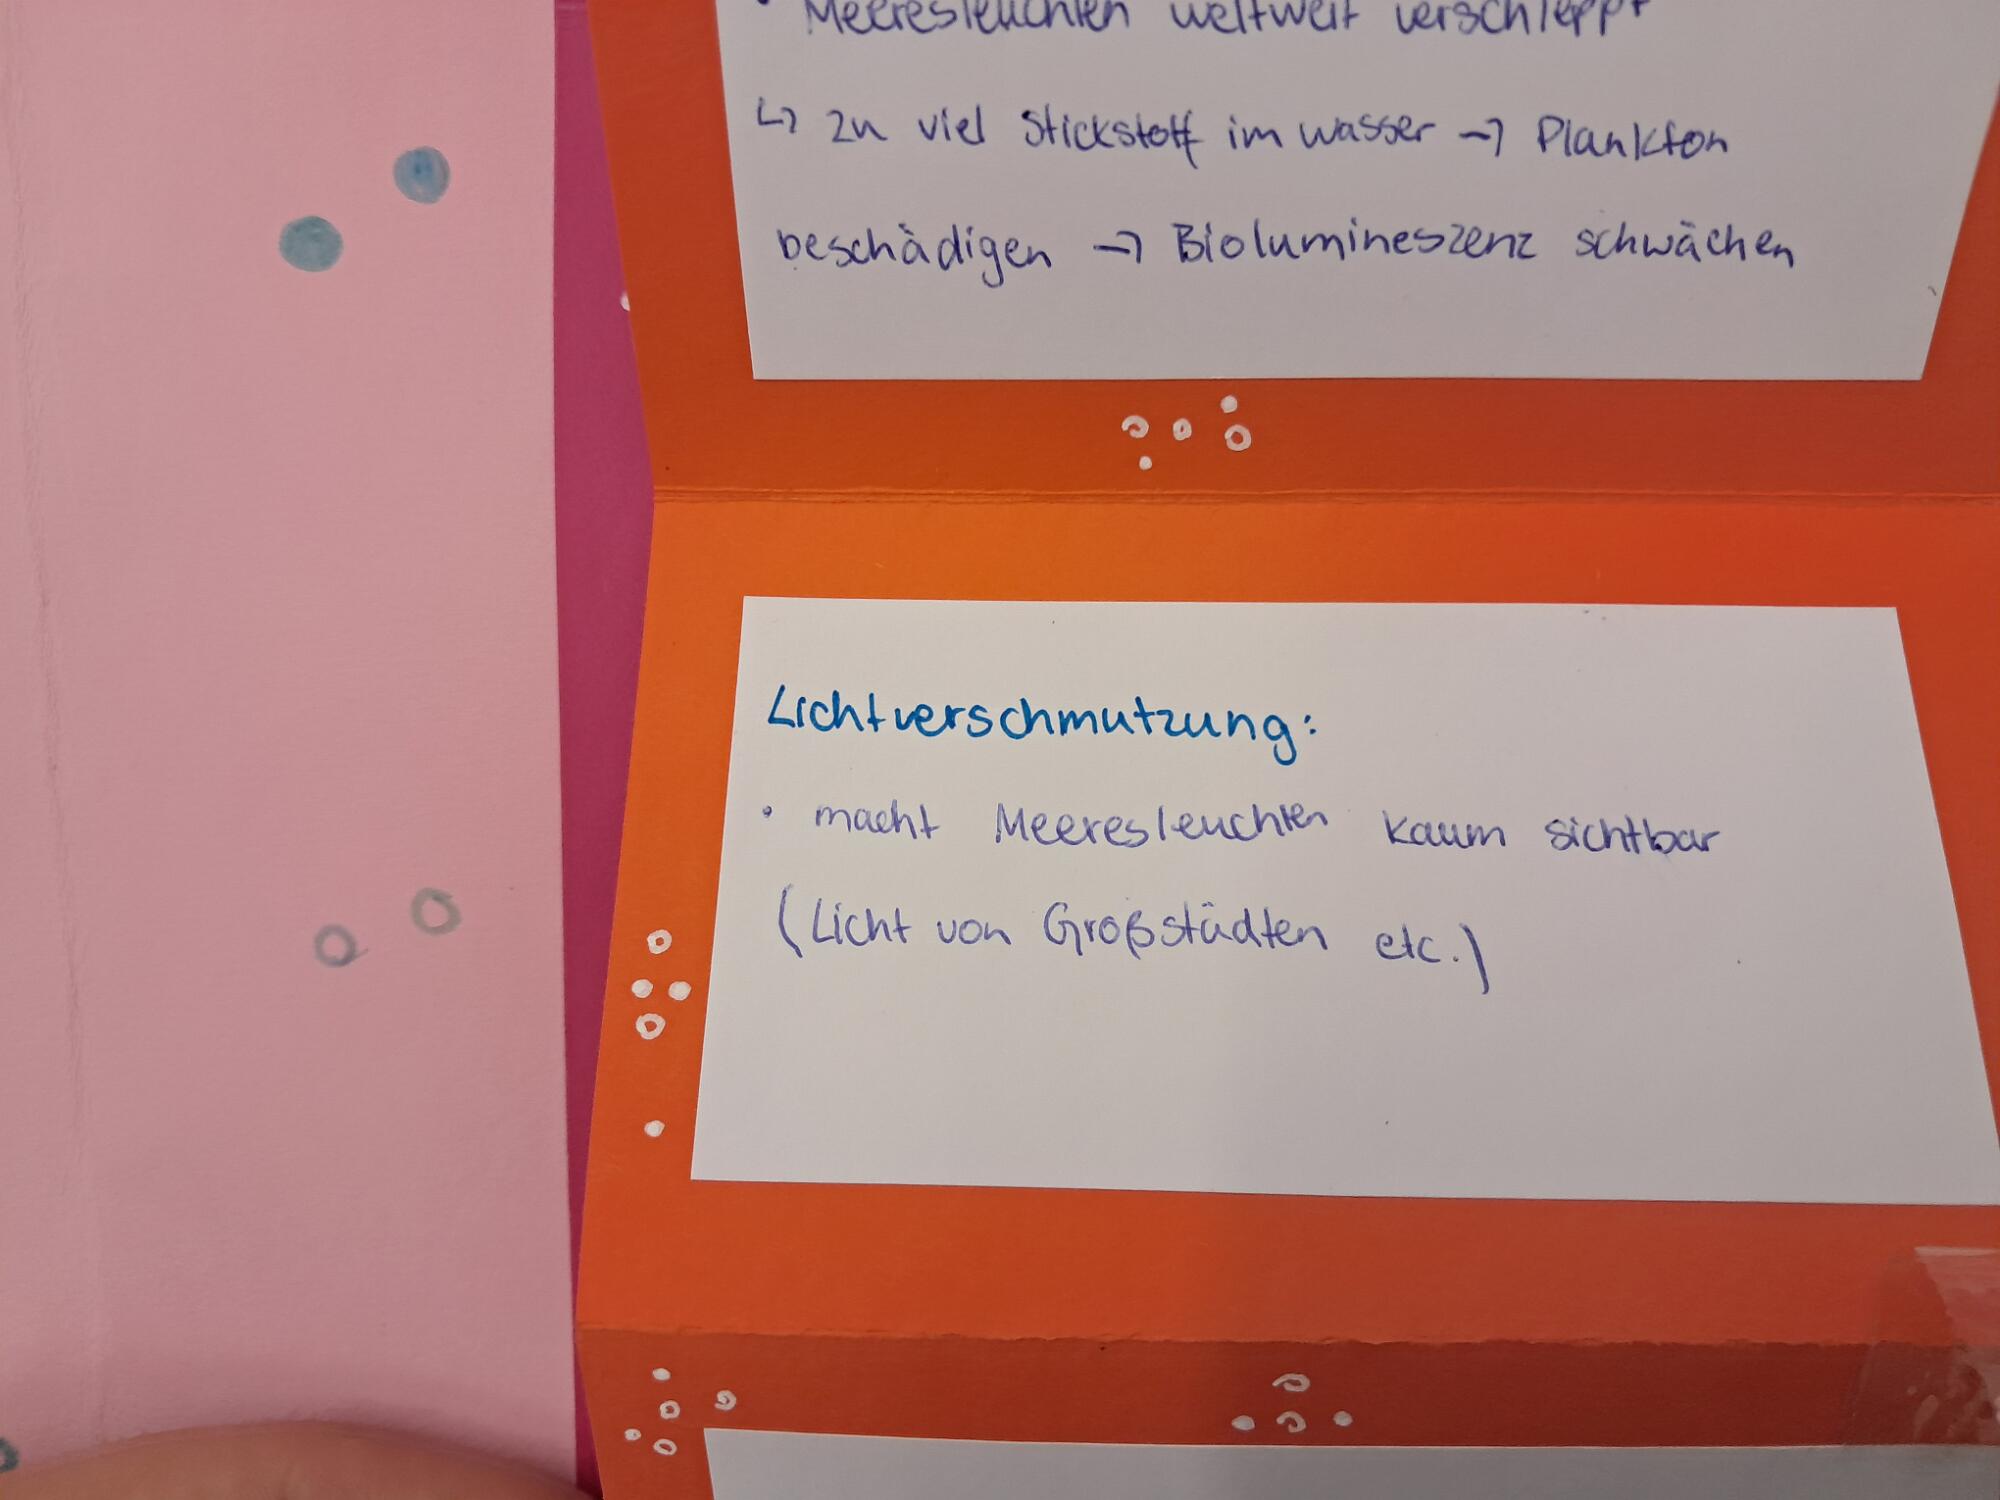 • Meeresleuchten weltweit verschleppt
↳ zu viel Stickstoff im wasser → Plankton
beschädigen → Biolumineszenz schwächen
Lichtverschmutzung:
• macht Meeresleuchten kaum sichtbar
(Licht von Großstädten etc.)